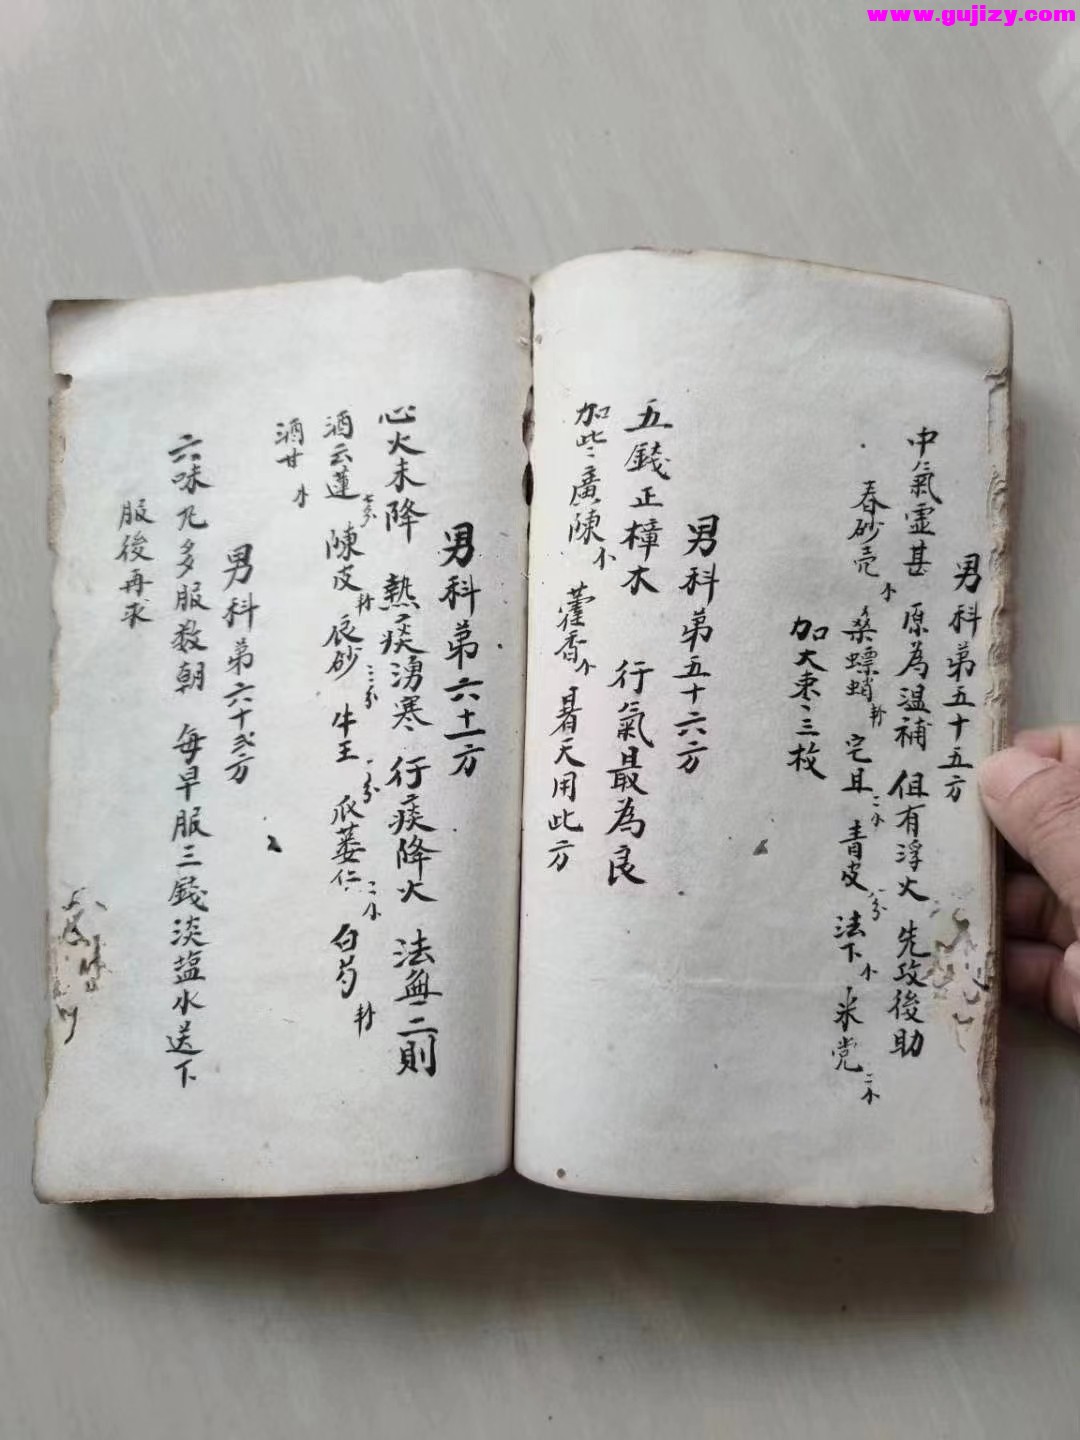 www.gujizy.com
男科第五十五方
中氣虛甚 原為溫補 但有浮火 先攻後助
春砂壳 小 桑螵蛸 宅且 二小 青皮 八分 法下 小 米党 二小
加大枣三枚
男科第五十六方
五錢正樟木 行氣最為良
加些廣陳 小 藿香 小 暑天用此方
男科第六十一方
心火未降 熱痰湧寒 行痰降火 法無二則
酒云蓮 七分 陳皮 辰砂 三分 牛王 一分 瓜蒌仁 二小 白芍
酒甘 小
男科第六十弍方
六味丸多服数朝 每早服三錢淡盐水送下
服後再求